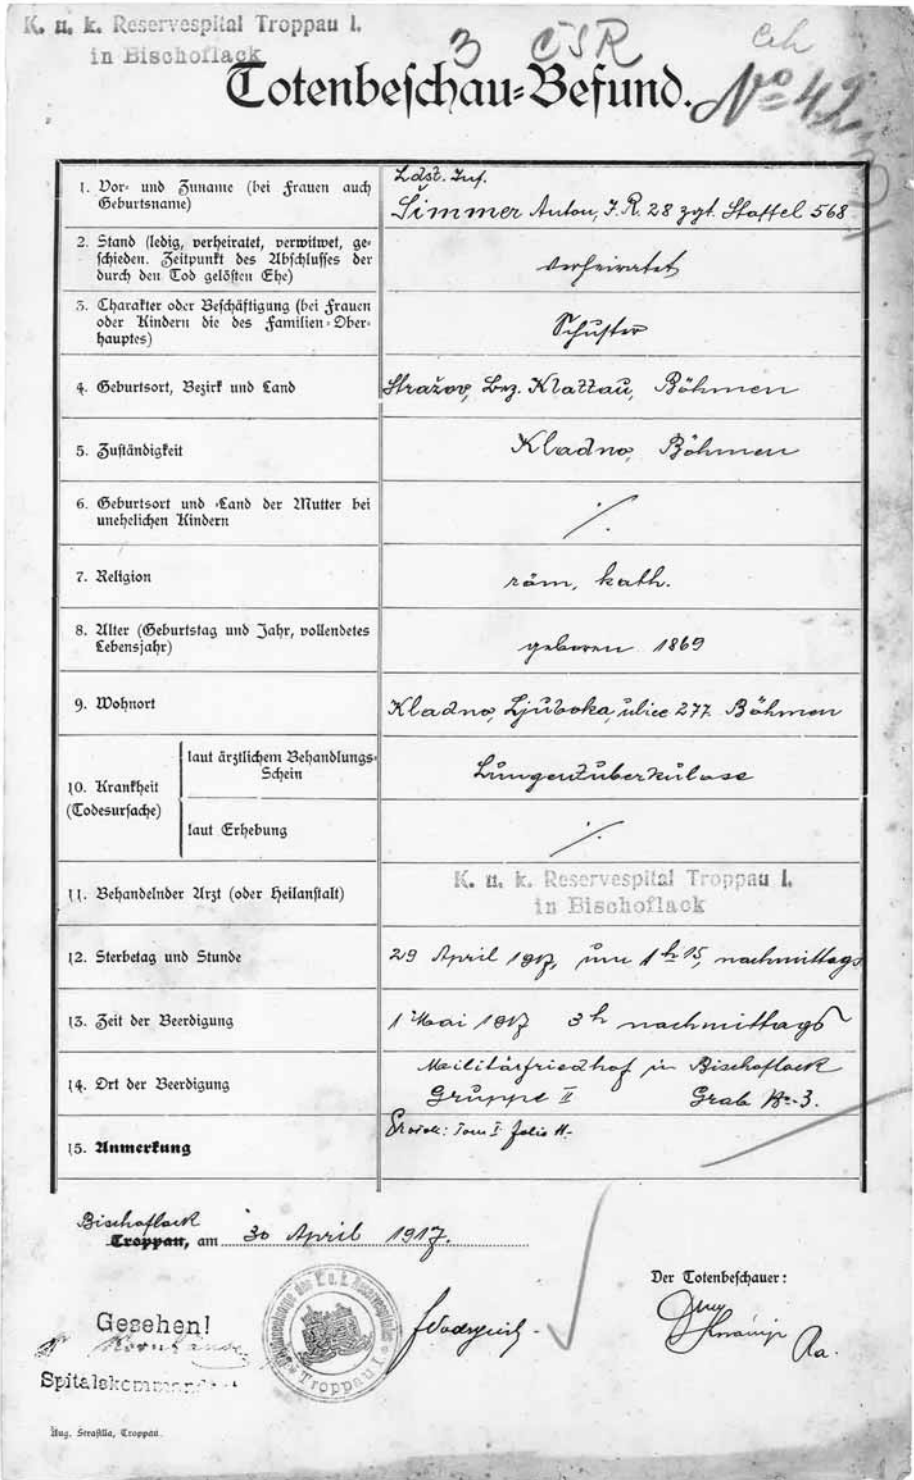 K. u. k. Reservespital Troppau I.
in Bischoflack
3 ČSR
Totenbeschau-Befund.
No 42
1. Vor- und Zuname (bei Frauen auch
Geburtsname)
Ldst. Inf.
Šimmer Anton, I. R. 28 zgt. Staffel 568
2. Stand (ledig, verheiratet, verwitwet, ge-
schieden. Zeitpunkt des Abschlusses der
durch den Tod gelösten Ehe)
verheiratet
3. Charakter oder Beschäftigung (bei Frauen
oder Kindern die des Familien-Ober-
hauptes)
Schuster
4. Geburtsort, Bezirk und Land
Stražov, Bez. Klattau, Böhmen
5. Zuständigkeit
Kladno, Böhmen
6. Geburtsort und -Land der Mutter bei
unehelichen Kindern
·/.
7. Religion
röm. kath.
8. Alter (Geburtstag und Jahr, vollendetes
Lebensjahr)
geboren 1869
9. Wohnort
Kladno, ulice 277. Böhmen
10. Krankheit
(Todesursache)
laut ärztlichem Behandlungs-
Schein
Lungentuberkulose
laut Erhebung
·/.
11. Behandelnder Arzt (oder Heilanstalt)
K. u. k. Reservespital Troppau I.
in Bischoflack
12. Sterbetag und Stunde
29 April 1917, um 1 h 15, nachmittags
13. Zeit der Beerdigung
1 Mai 1917 3 h nachmittags
14. Ort der Beerdigung
Militärfriedhof in Bischoflack
Gruppe II Grab Nr. 3.
15. Anmerkung
Tom I folio
Bischoflack
Troppau, am 30 April 1917.
Der Totenbeschauer:
Gesehen!
Ra.
Troppau I
Aug. Strasilla, Troppau.